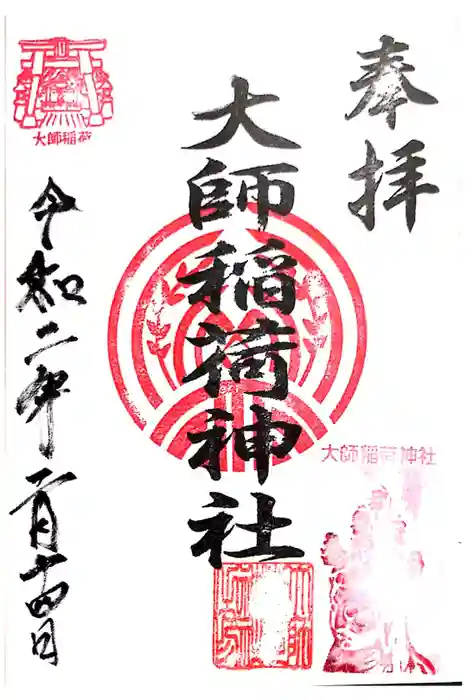 奉拝
大師稲荷神社
令和二年二月十四日
大師稲荷
大師稲荷神社